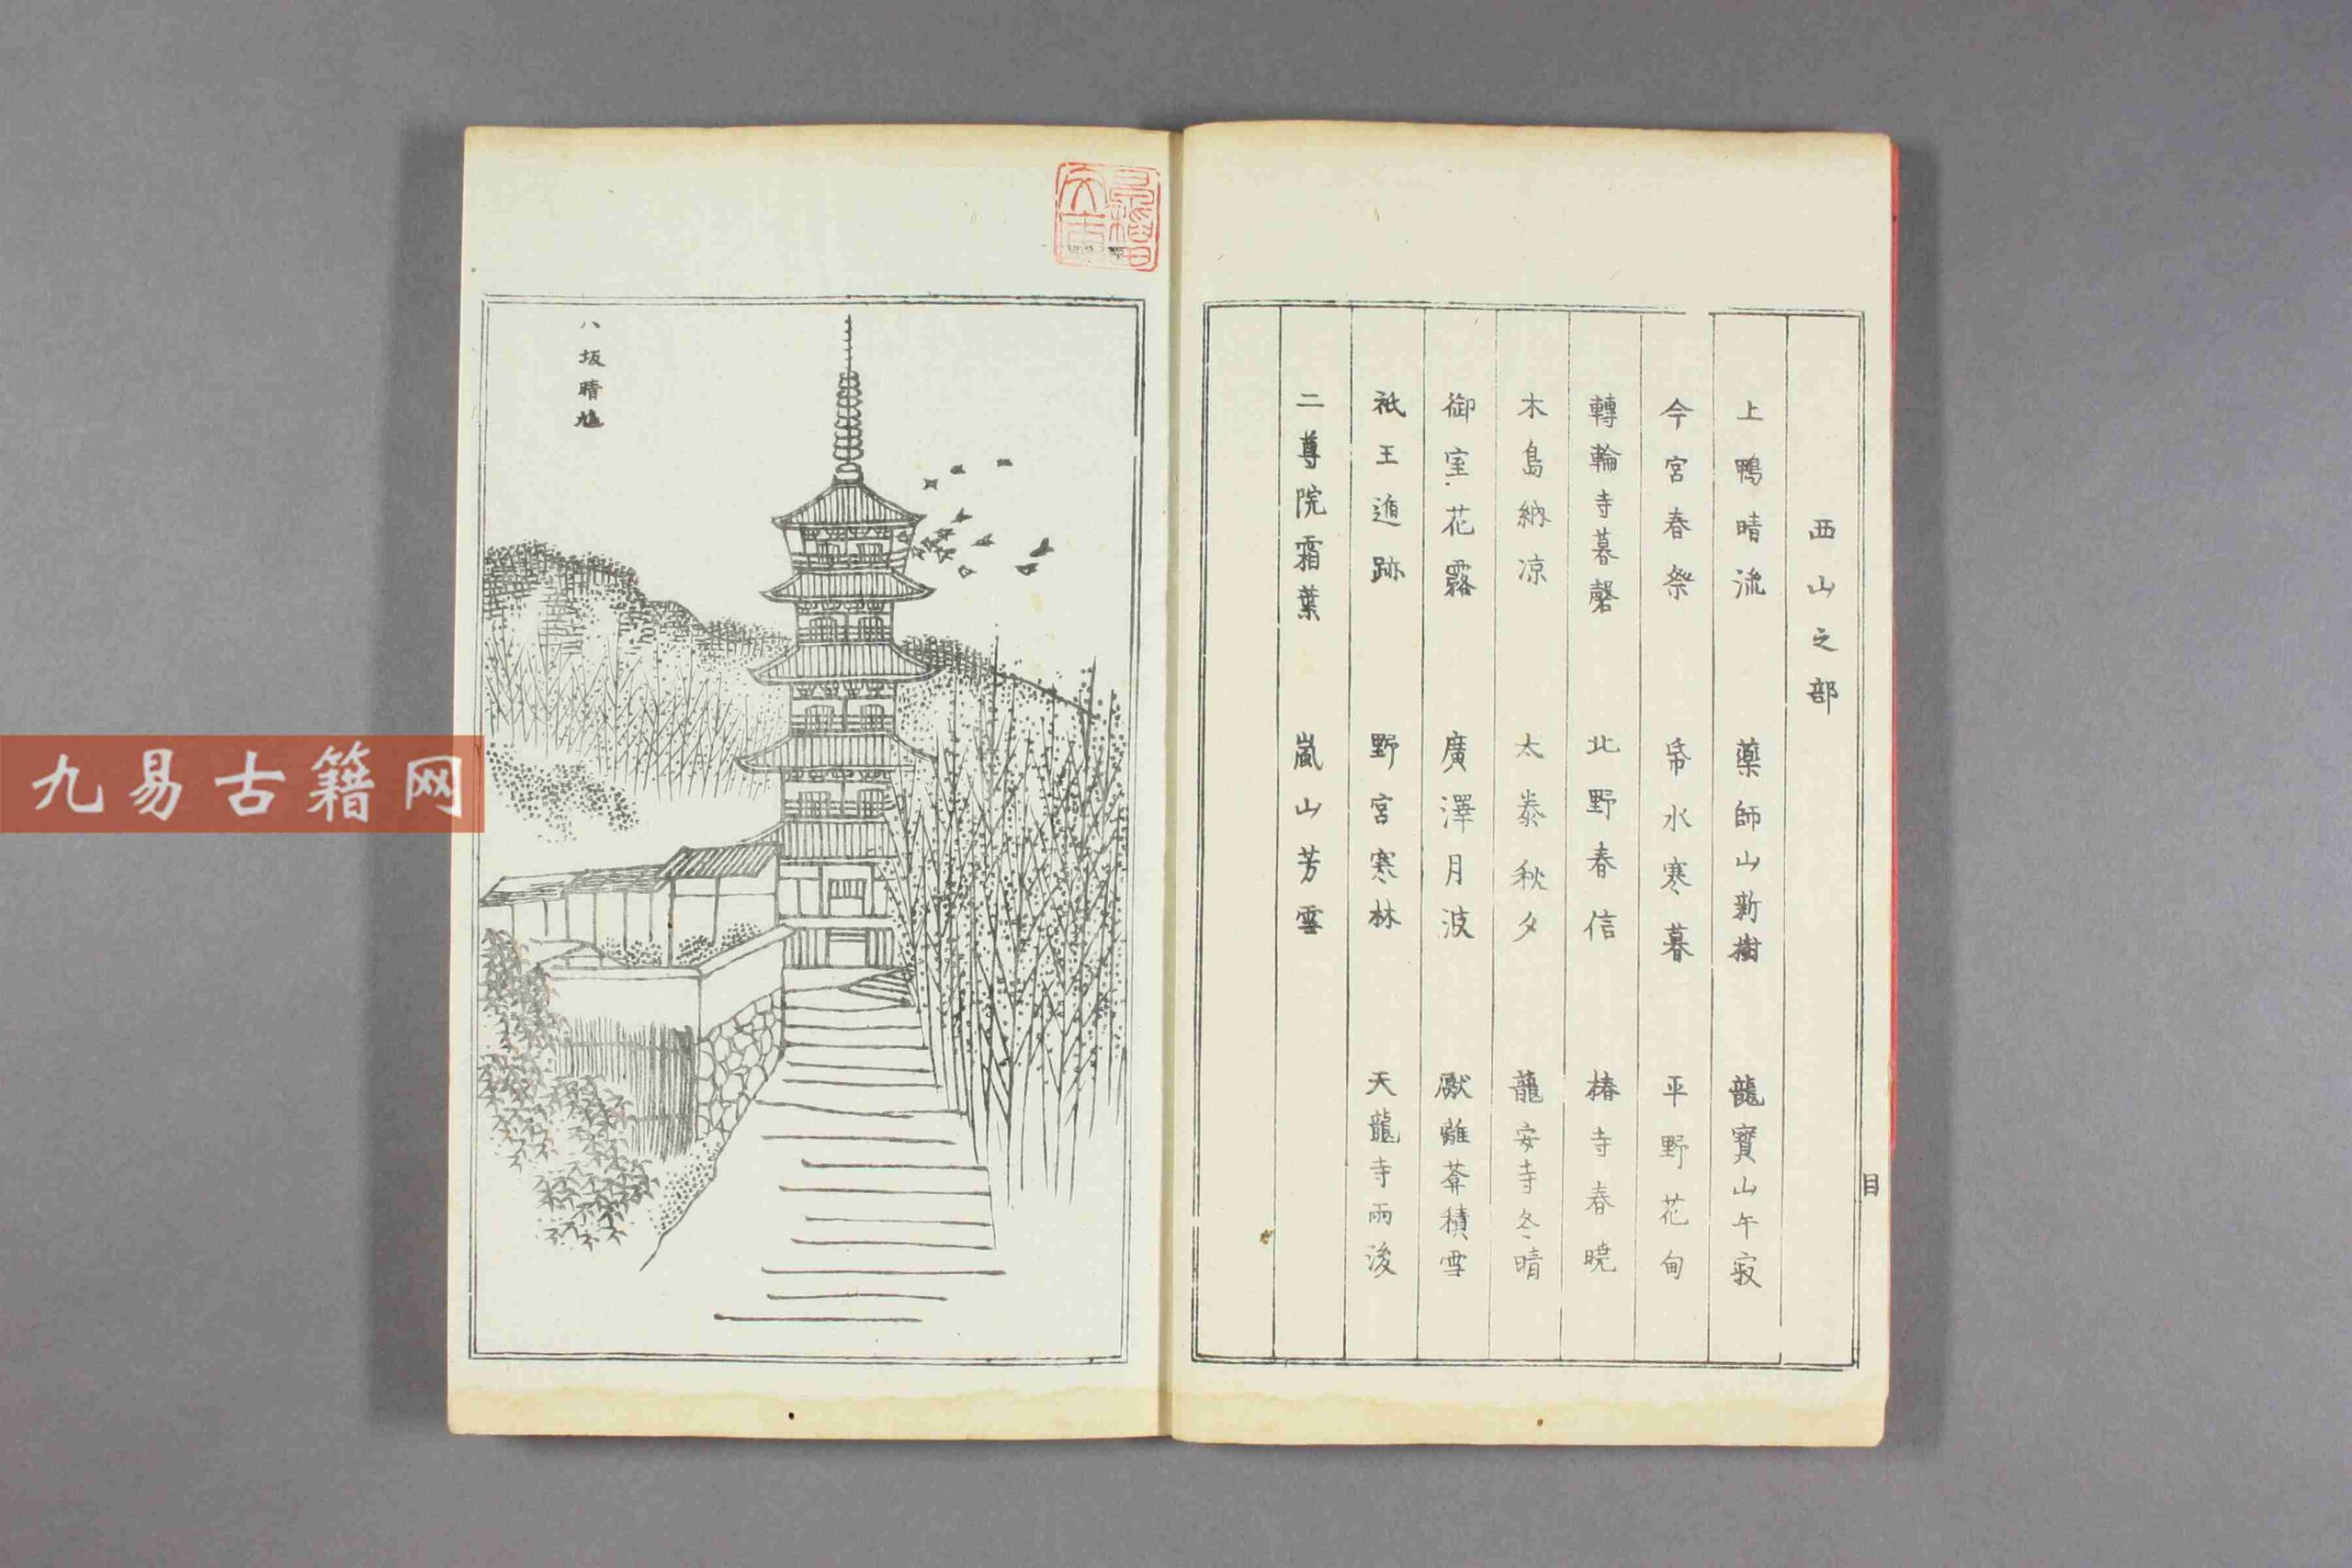 西山之部
上鴨晴流 藥師山新樹 龍寶山午寂
今宮春祭 帋水寒暮 平野花甸
轉輪寺暮磬 北野春信 椿寺春曉
木島納凉 太泰秋夕 龍安寺冬晴
御室花露 廣澤月波 厭離菴積雪
祇王遁跡 野宮寒林 天龍寺雨後
二尊院霜葉 嵐山芳雪
目
八坂晴鳩
九易古籍网